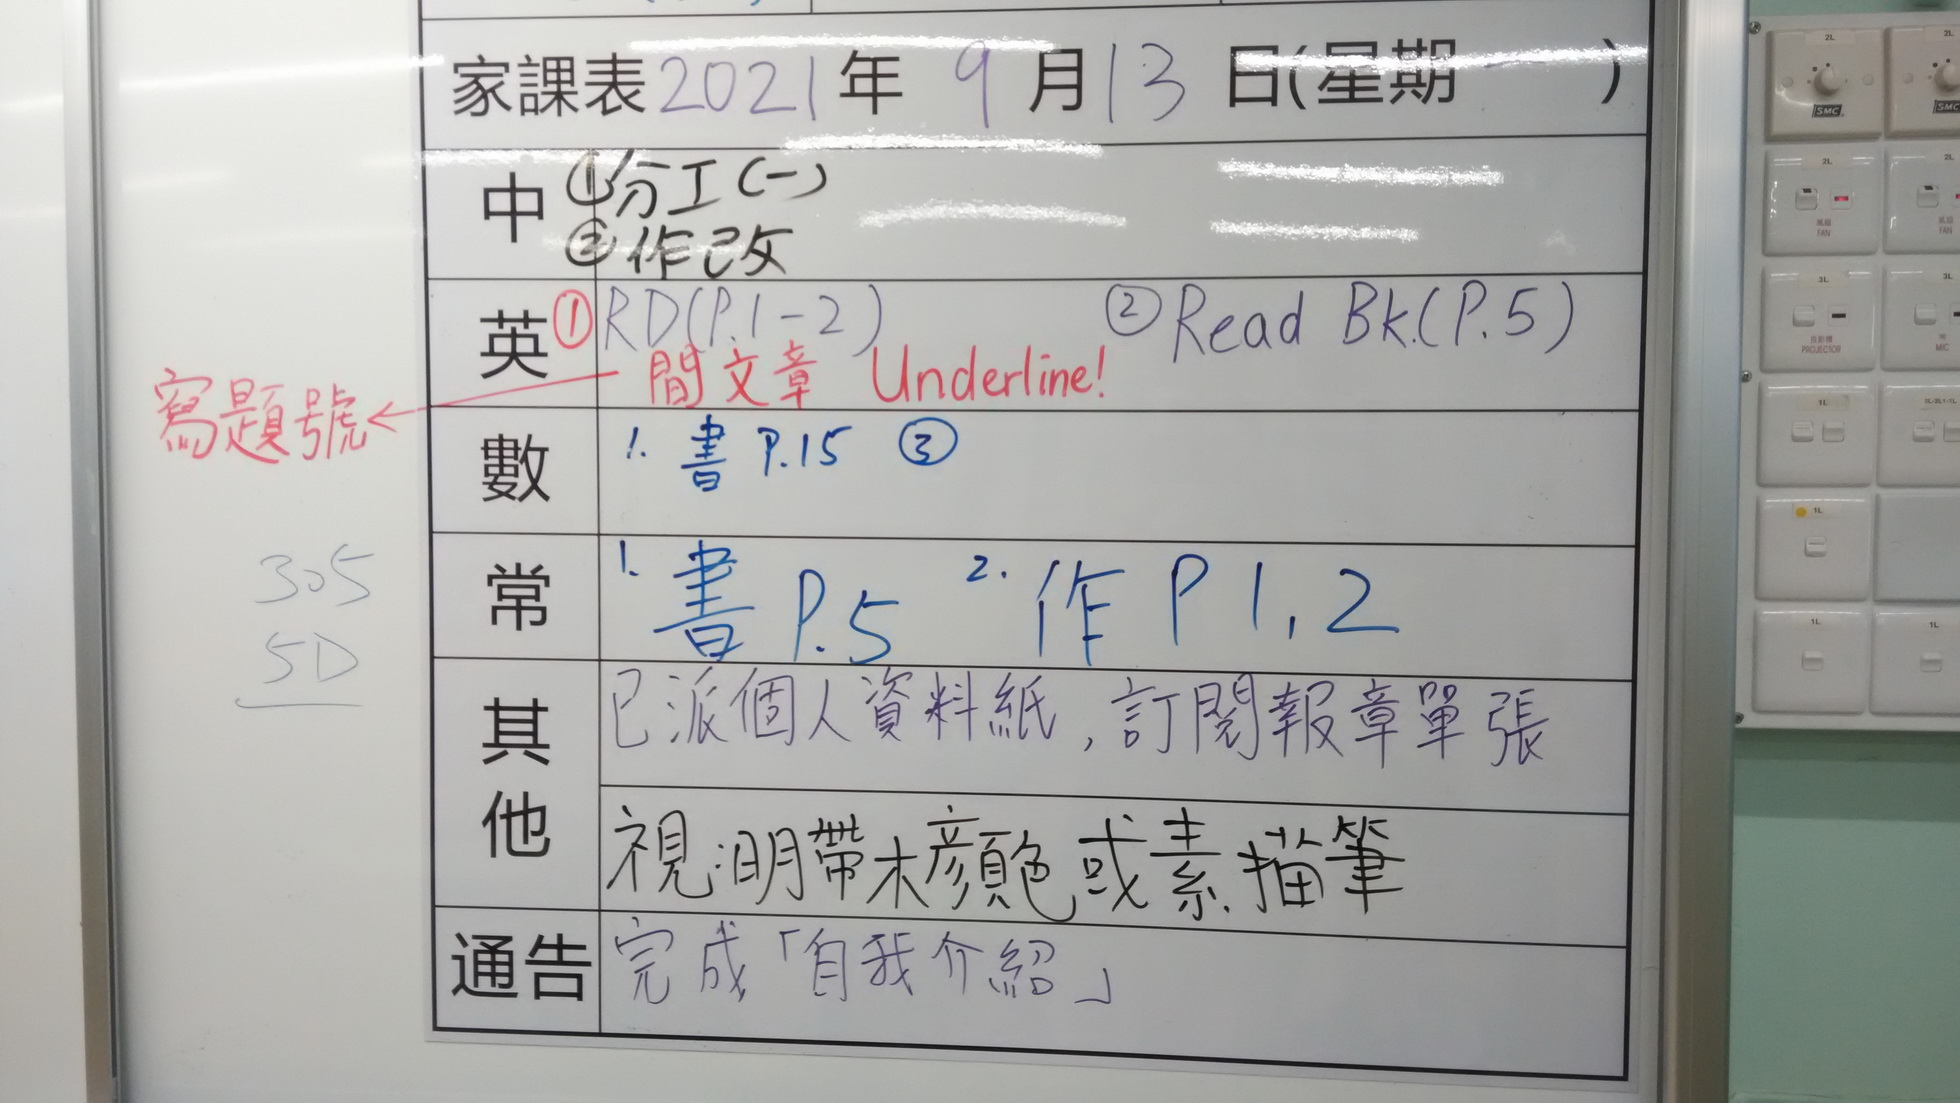 家課表 2021 年 9 月 13 日(星期 一 )
中 ①分工(一)
②作改
英 ①RD(P.1-2) ②Read Bk.(P.5)
間文章 Underline!
寫題號
數 1. 書 P.15 ③
常 1. 書 P.5 2. 作 P 1, 2
305
5D
其他 已派個人資料紙,訂閱報章單張
視:明帶木顏色或素描筆
通告 完成「自我介紹」
2L
2L
SMC
SMC
2L
2L
風扇
FAN
風扇
FAN
3L
3L
投影機
PROJECTOR
MIC
1L
1L
1L
1L